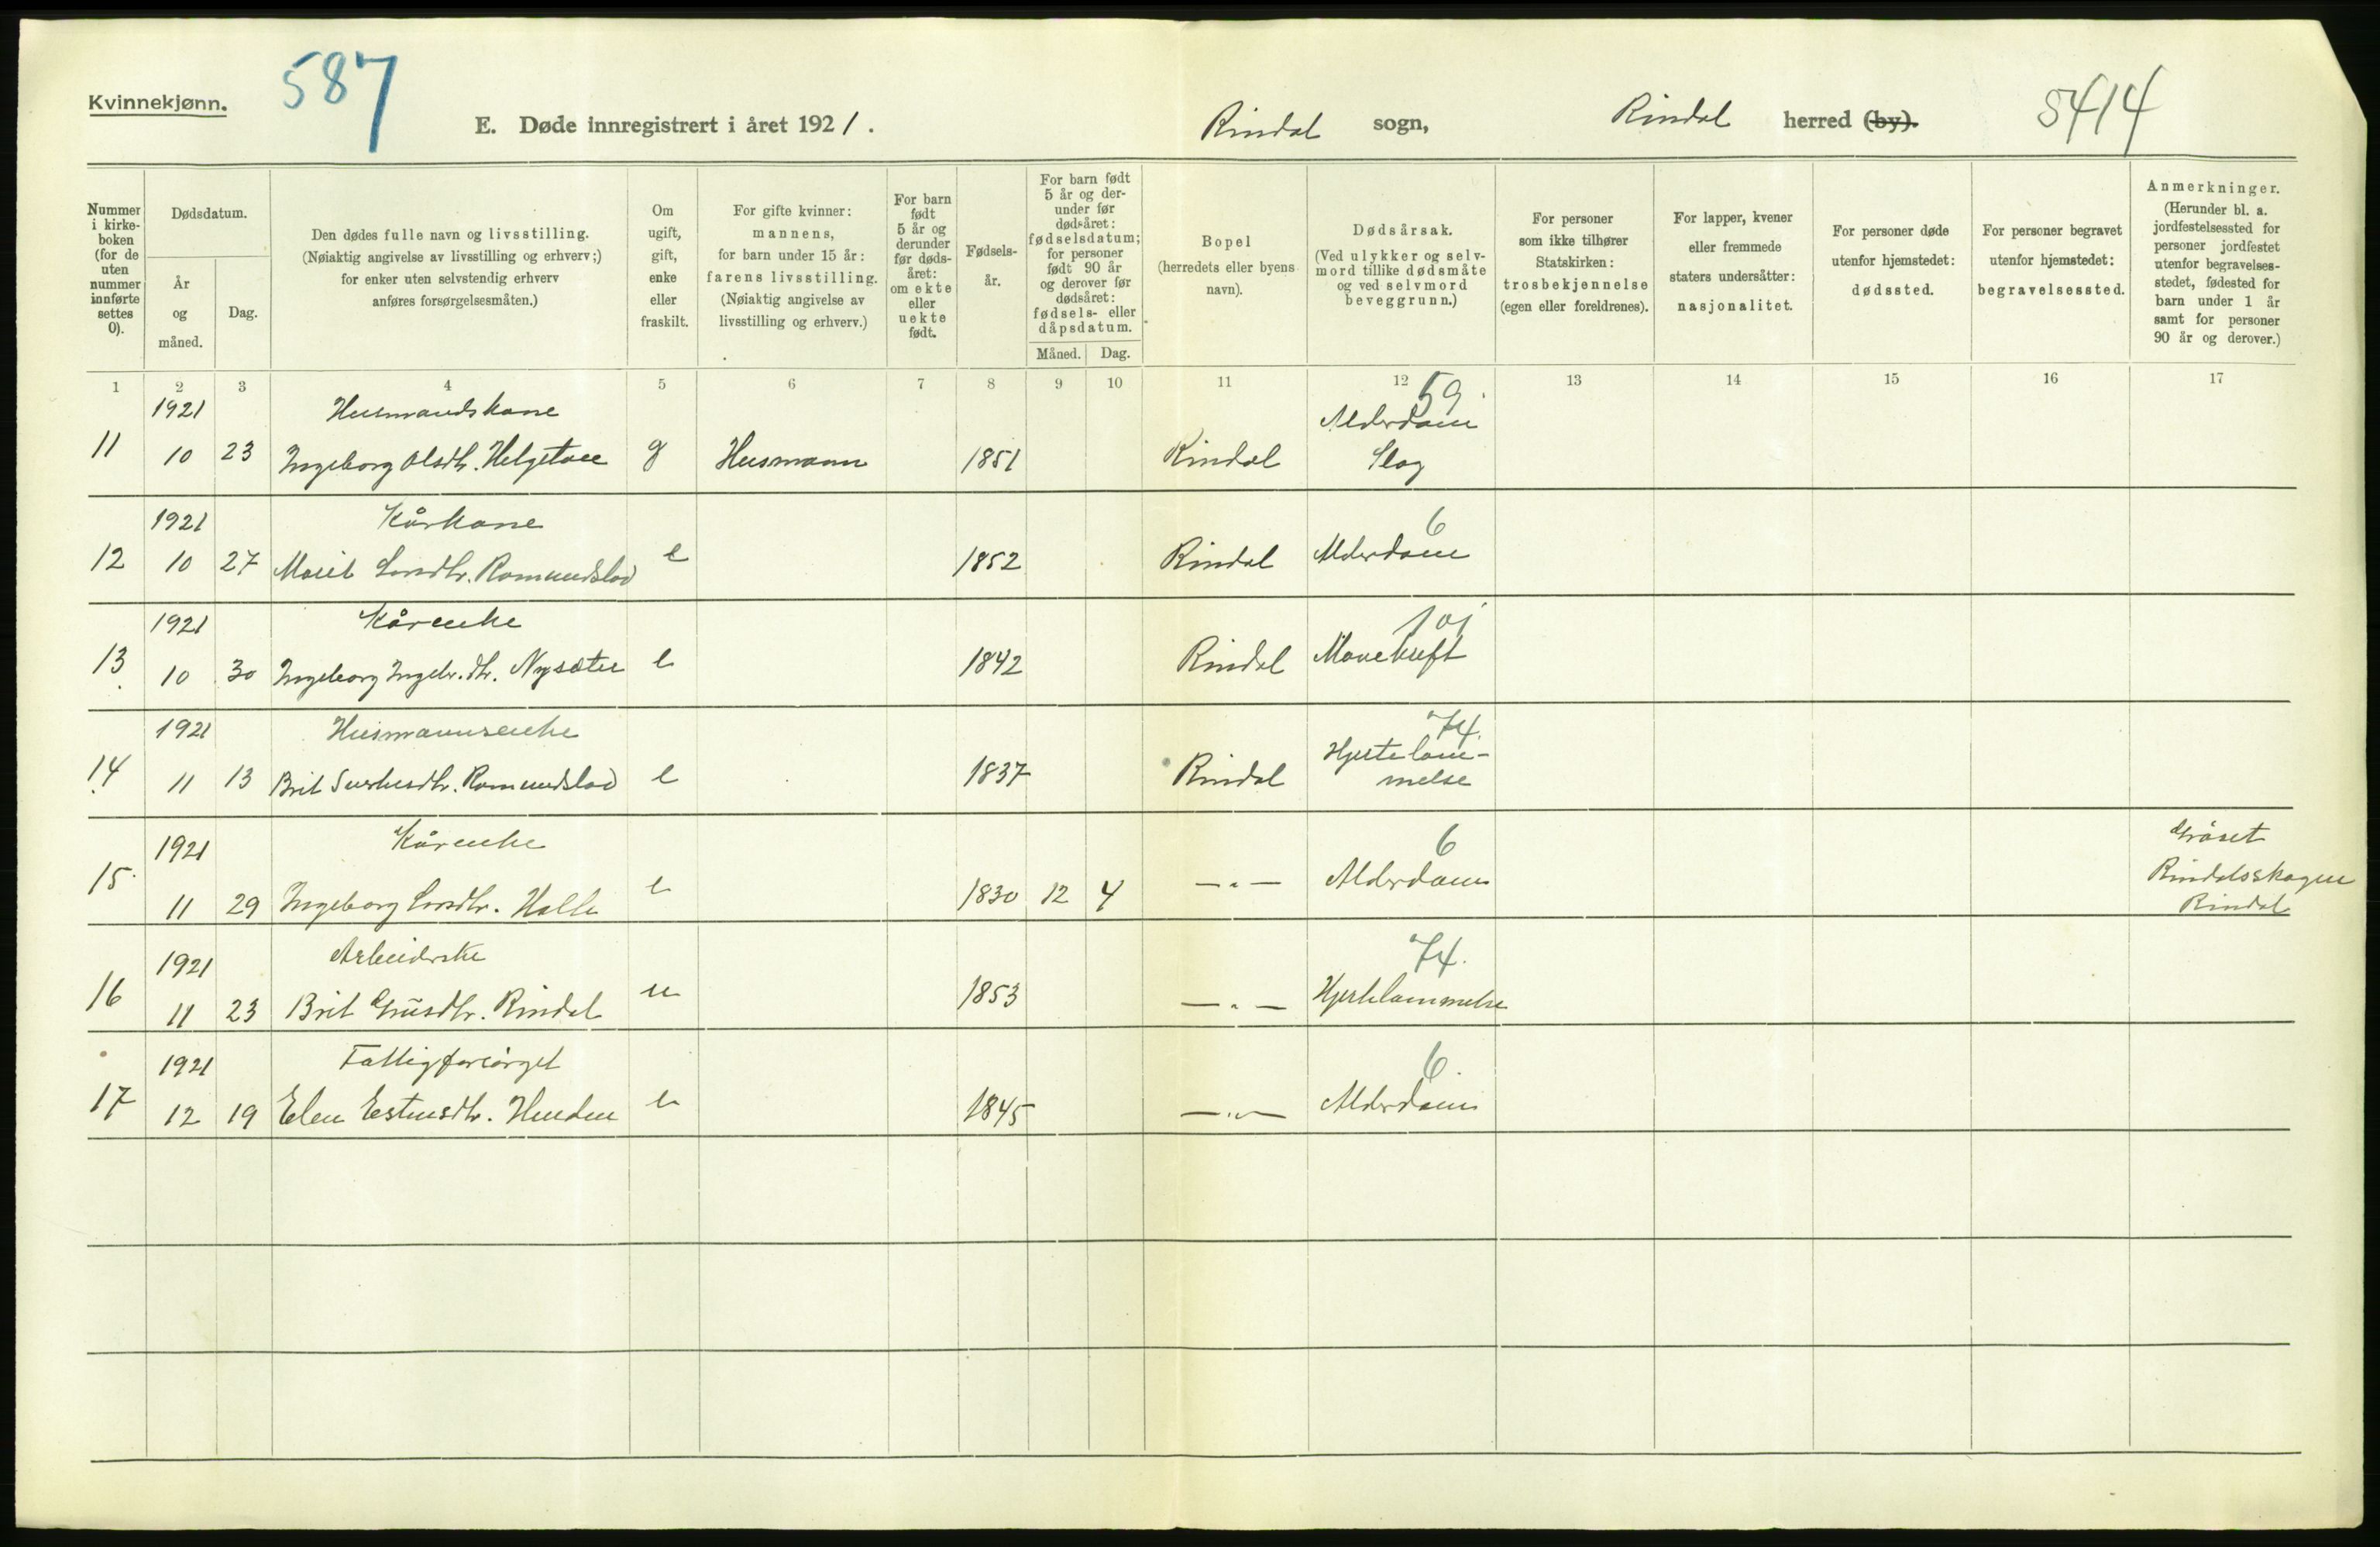 Kvinnekjønn.
587
E. Døde innregistrert i året 1921.
Rindal sogn,
Rindal herred (by).
5414
Nummer i kirke-boken (for de uten nummer innførte settes 0).
Dødsdatum.
År og måned.
Dag.
Den dødes fulle navn og livsstilling.
(Nøiaktig angivelse av livsstilling og erhverv;)
for enker uten selvstendig erhverv
anføres forsørgelsesmåten.)
Om ugift, gift, enke eller fraskilt.
For gifte kvinner:
mannens,
for barn under 15 år:
farens livsstilling.
(Nøiaktig angivelse av
livsstilling og erhverv.)
For barn født 5 år og derunder før døds-året: om ekte eller uekte født.
Fødsels-år.
For barn født 5 år og der-under før dødsåret: fødselsdatum; for personer født 90 år og derover før dødsåret: fødsels- eller dåpsdatum.
Måned. Dag.
Bopel
(herredets eller byens
navn).
Dødsårsak.
(Ved ulykker og selv-
mord tillike dødsmåte
og ved selvmord
beveggrunn.)
For personer
som ikke tilhører
Statskirken:
trosbekjennelse
(egen eller foreldrenes).
For lapper, kvener
eller fremmede
staters undersåtter:
nasjonalitet.
For personer døde
utenfor hjemstedet:
dødssted.
For personer begravet
utenfor hjemstedet:
begravelsessted.
Anmerkninger.
(Herunder bl. a.
jordfestelsessted for
personer jordfestet
utenfor begravelses-
stedet, fødested for
barn under 1 år
samt for personer
90 år og derover.)
1 2 3 4 5 6 7 8 9 10 11 12 13 14 15 16 17
1921 Husmandskone 59
Alderdom
11 10 23 Ingeborg Olsdtr. Helgetun g Husmann 1851 Rindal Slag
1921 Kårkone 6
12 10 27 Marit Larsdtr. Romundstad e 1852 Rindal Alderdom
1921 Kårenke 101
13 10 30 Ingeborg Ingebr.dtr. Nysæter e 1842 Rindal Mavekreft
1921 Husmannsenke 74.
Hjertelam-
14 11 13 Brit Sivertsdtr. Romundstad e 1837 Rindal melse
1921 Kårenke 6 Gråset
15 11 29 Ingeborg Larsdtr. Halle e 1830 12 4 —„— Alderdom Rindalsskogen
Rindal
1921 Arbeiderske 74.
16 11 23 Brit Rindal u 1853 —„— Hjertelammelse
1921 Fattigforsørget 6.
17 12 19 Elen Estensdtr. e 1845 —„— Alderdom